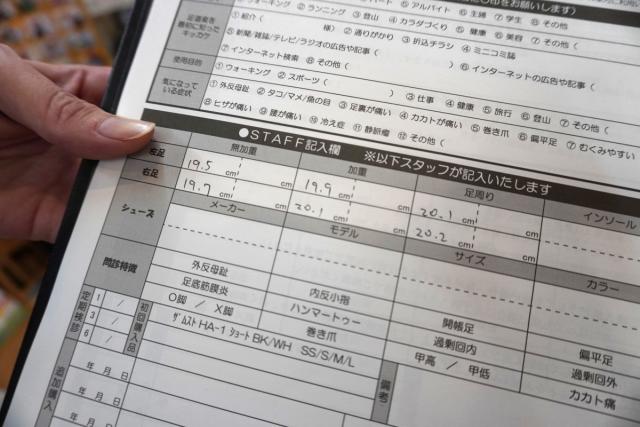 ウォーキング ② ランニング ③ 登山 ④ カラダづくり ⑤ 健康 ⑥ 美容 ⑦ その他(
⑤ アルバイト ⑥ 主婦 ⑦ 学生 ⑧ その他
足道楽を最初に知ったキッカケ
① 紹介( 様) ② 通りがかり ③ 折込チラシ ④ ミニコミ誌
⑤ 新聞/雑誌/テレビ/ラジオの広告や記事( ) ⑥ インターネットの広告や記事(
⑦ インターネット検索 ⑧ その他(
使用目的
① ウォーキング ② スポーツ( ) ③ 仕事 ④ 健康 ⑤ 旅行 ⑥ 登山 ⑦ その他(
気になっている症状
① 外反母趾 ② タコ/マメ/魚の目 ③ 足裏が痛い ④ カカトが痛い ⑤ 巻き爪 ⑥ 偏平足 ⑦ むくみやすい
⑧ ヒザが痛い ⑨ 腰が痛い ⑩ 冷え症 ⑪ 静脈瘤 ⑫ その他(
●STAFF記入欄 ※以下スタッフが記入いたします
無加重 加重 足周り インソール
左足 19.5 cm 19.9 cm 20.1 cm
右足 19.7 cm 20.1 cm 20.2 cm
シューズ メーカー モデル サイズ カラー
問診特徴
外反母趾 内反小指 開帳足 偏平足
足底筋膜炎 ハンマートゥー 過剰回内 過剰回外
O脚 / X脚 巻き爪 甲高 / 甲低 カカト痛
定期検診 1 / 3 / 6 /
初回購入品
ザムスト HA-1 ショート BK/WH SS/S/M/L
備考
追加購入
年 月 日
年 月 日
年 月 日